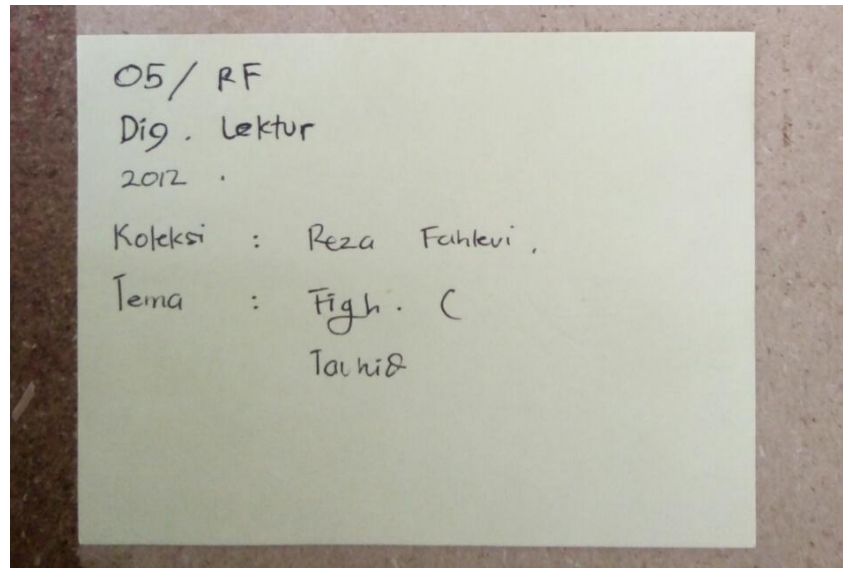 05/ RF
Dig. Lektur
2012 .
Koleksi : Reza Fahlevi .
Tema : Fiqh. (
Tauhid